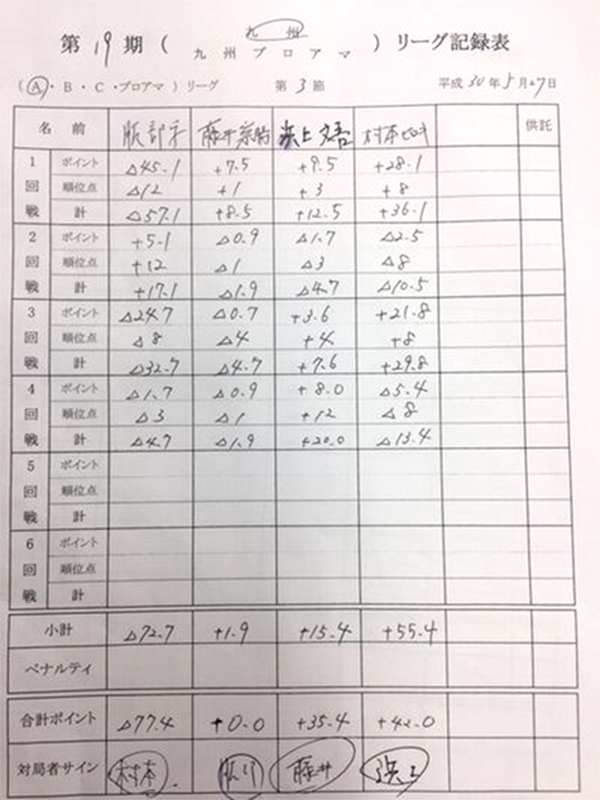 第 19 期 ( 九州 九州プロアマ ) リーグ記録表
( A・B・C・プロアマ ) リーグ 第 3 節 平成 30 年 5 月 27 日
名前 服部学 藤井 浜上文吾 村本ヒロキ 供託
1回戦 ポイント △45.1 +7.5 +9.5 +28.1
順位点 △12 +1 +3 +8
計 △57.1 +8.5 +12.5 +36.1
2回戦 ポイント +5.1 △0.9 △1.7 △2.5
順位点 +12 △1 △3 △8
計 +17.1 △1.9 △4.7 △10.5
3回戦 ポイント △24.7 △0.7 +3.6 +21.8
順位点 △8 △4 +4 +8
計 △32.7 △4.7 +7.6 +29.8
4回戦 ポイント △1.7 △0.9 +8.0 △5.4
順位点 △3 △1 +12 △8
計 △4.7 △1.9 +20.0 △13.4
5回戦 ポイント
順位点
計
6回戦 ポイント
順位点
計
小計 △72.7 +1.9 +15.4 +55.4
ペナルティ
合計ポイント △77.4 +0.0 +35.4 +42.0
対局者サイン 村本 服部 藤井 浜上